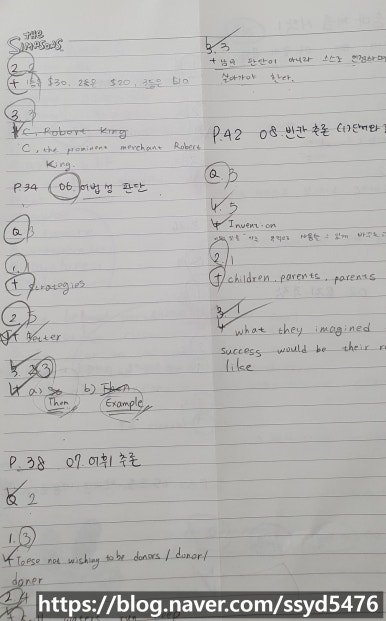 THE
SIMPSONS
2. 2
+ $30, 2등은 $20, 3등은 $10
3. 3
C, Robert King
C, the prominent merchant Robert
King.
P.34 06 어법성 판단
Q 3
1. 1
+ strategies
2. 5
+ Better
3. 2 3
4 a) So b) Then
Then Example
P.38 07 어휘 추론
Q 2
1. 3
+ Those not wishing to be donors / donor /
doner
2. 4
3. 3
+ 판단이 아니라 스스로
살아가야 한다.
P.42 08. 빈칸 추론 (1)단어와
Q 5
1. 5
+ Invention
2. 1
+ children, parents, parents
3. 1
+ what they imagined
success would be their
like
https://blog.naver.com/ssyd5476